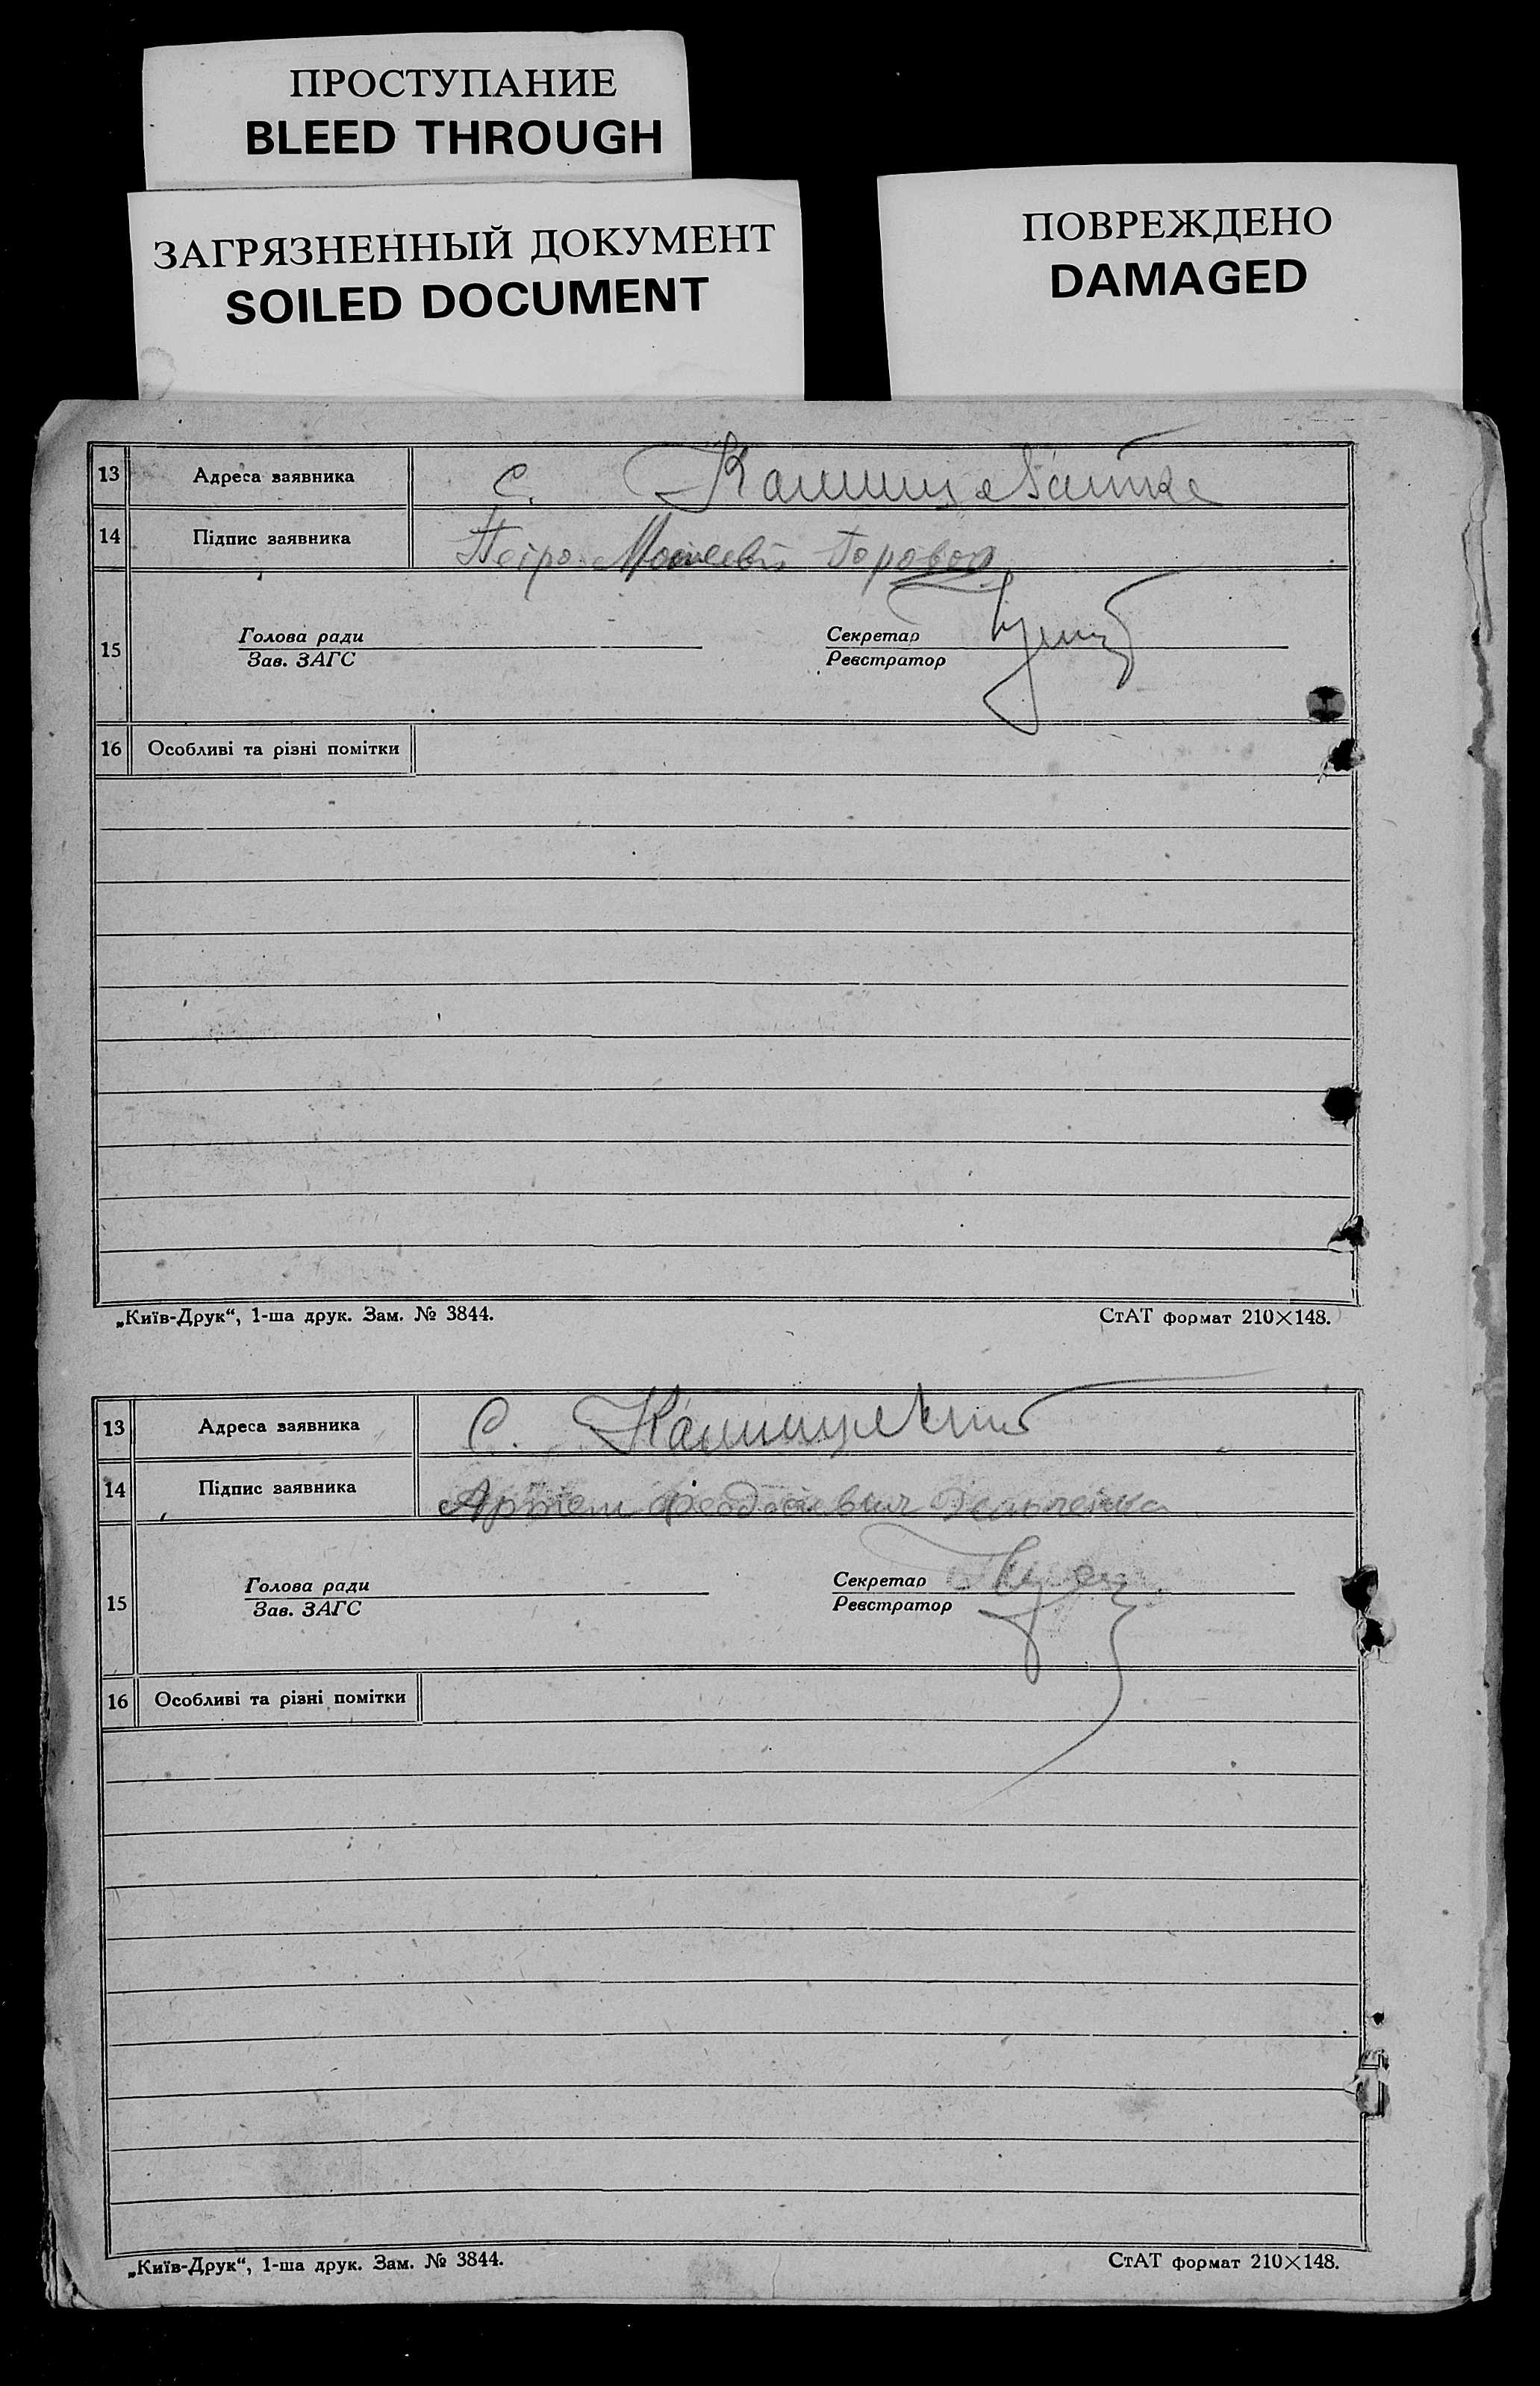 ПРОСТУПАНИЕ
BLEED THROUGH
ЗАГРЯЗНЕННЫЙ ДОКУМЕНТ
SOILED DOCUMENT
ПОВРЕЖДЕНО
DAMAGED
13 Адреса заявника с.
14 Підпис заявника Петро
15 Голова ради Секретар
Зав. ЗАГС Реєстратор
16 Особливі та різні помітки
„Київ-Друк“, 1-ша друк. Зам. № 3844. СтАТ формат 210×148.
13 Адреса заявника С.
14 Підпис заявника Артем
15 Голова ради Секретар
Зав. ЗАГС Реєстратор
16 Особливі та різні помітки
„Київ-Друк“, 1-ша друк. Зам. № 3844. СтАТ формат 210×148.